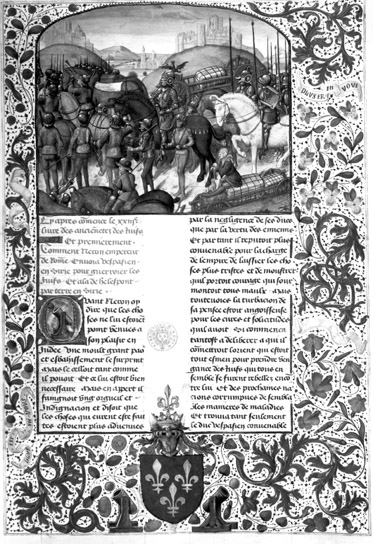 Cy apres comence le xxiiie
liure des ancienetes des iuifs
Et premierement
Comment Neron empereur
de Rome enuoia vaspasien
en sirie pour guerroier les
iuifs
par terre en sirie
Quant Neron oy
dire que les cho
ses ne lui estoiẽt
point venues a
son plaisir en
Judee Vne moult grant paõ
et esbahissement le surprint
mais le celloit tant comme
il pouoit Et ce lui estoit bien
necessaire Mais en apert il
fumignoit vng orgueil et
Indignacion et disoit que
les choses qui eurent este fait
tes estoient plus aduenues
par la negligence de ses ducs
que par la vertu des ennemis
Et partant il reputoit plus
conuenable pour la charge
de lempire de laissier les cho
ses plus tristes et de monstrer
quil portoit courage qui sour
montoit tous maulx Mais
toutesuoies la turbacion de
sa pensee estoit angoisseuse
pour les cures et solicitudes
quil auoit Et commencem
tantost a deliberer a qui il
commettroit lorient qui estoit
tout esmeu pour prendre ven
gance des iuifs qui tous en
semble se furent rebellez encõ
tre lui Et des prochames na
cions corrumpues de sembla
bles manieres de maladies
Et trouua tant seulement
le duc vaspasien conuenable